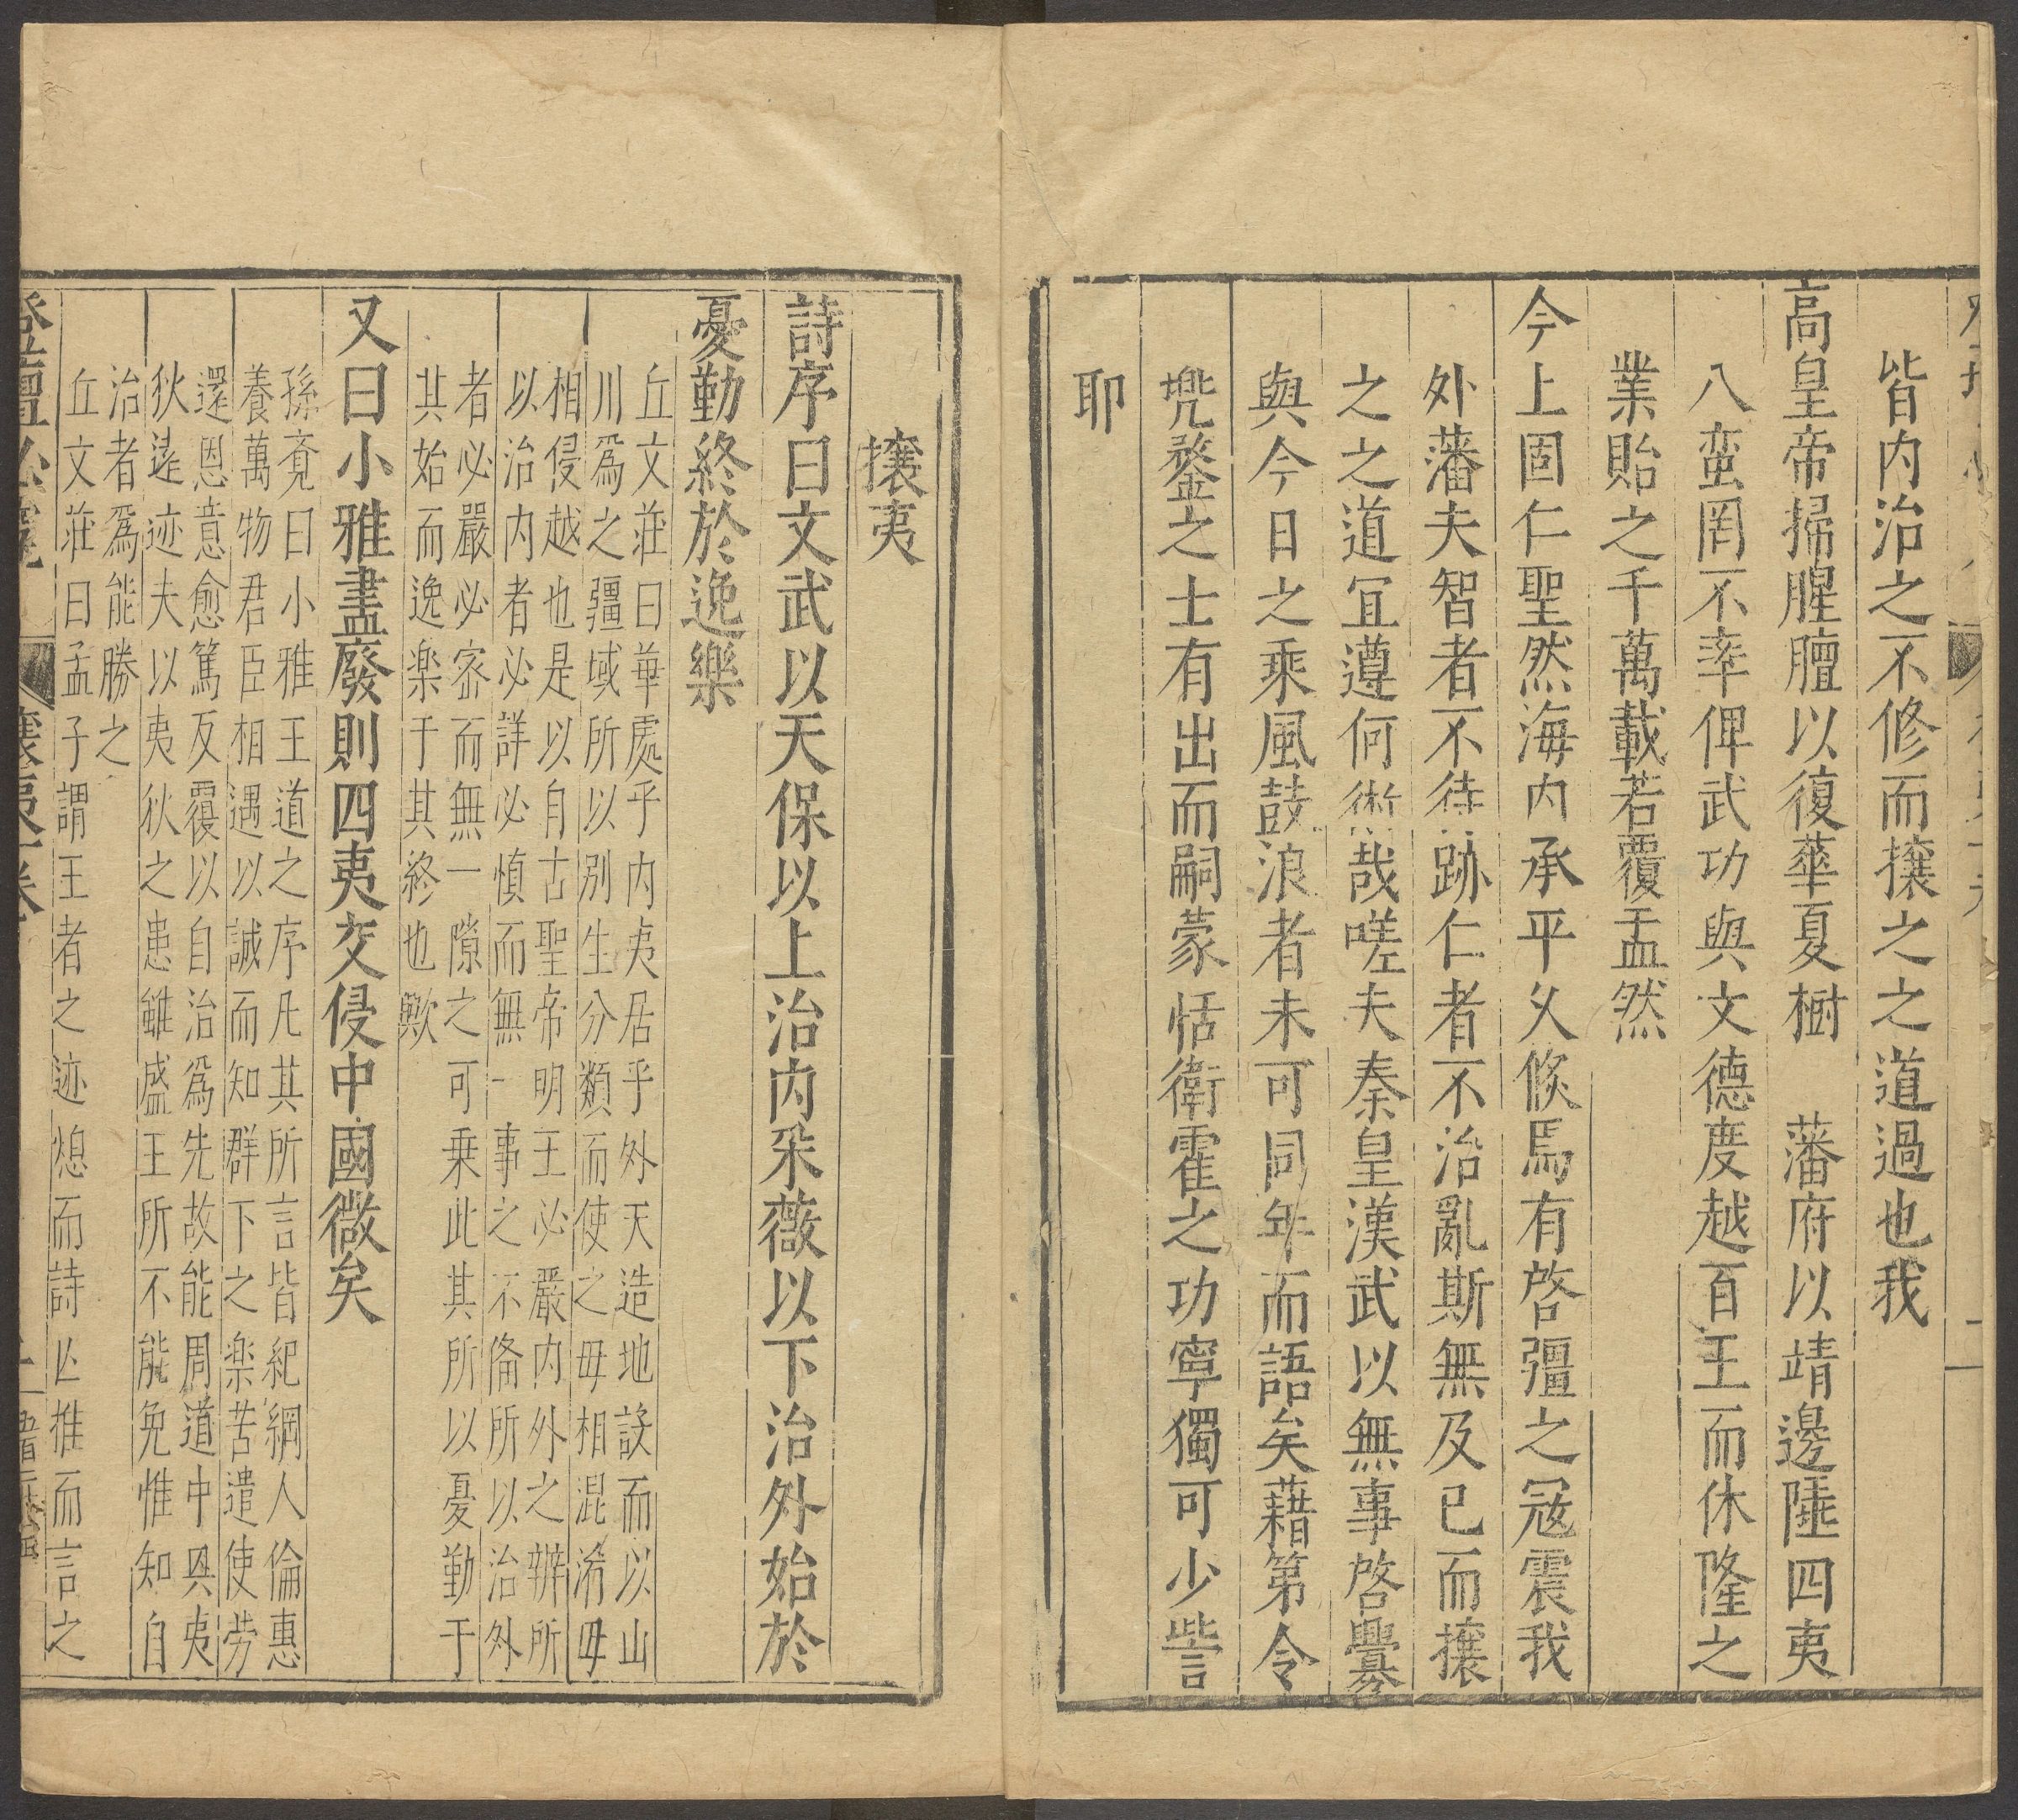 皆内治之不修而攘之之道過也我
高皇帝掃腥膻以復華夏樹　藩府以靖邊陲四夷
八蛮罔不率俾武功與文德度越百王而休隆之
業貽之千萬載若覆盂然
今上固仁聖然海内承平乆倐焉有啓彊之冦震我
外藩夫智者不待跡仁者不治亂斯無及已而攘
之之道宜遵何術哉嗟夫秦皇漢武以無事啓釁
與今日之乘風鼓浪者未可同年而語矣藉第令
兠鍪之士有出而嗣蒙恬衛霍之功寧獨可少訾
耶
攘夷
詩序曰文武以天保以上治内采薇以下治外始於
憂勤終於逸樂
丘文莊曰華處乎内夷居乎外天造地設而以山
川爲之疆域所以别生分類而使之毋相混淆毋
相侵越也是以自古聖帝明王必嚴内外之辨所
以治内者必詳必慎而無一事之不俻所以治外
者必嚴必宻而無一隙之可乗此其所以憂勤于
其始而逸楽于其終也歟
又曰小雅盡廢則四夷交侵中國微矣
孫覺曰小雅王道之序凡其所言皆紀綱人倫惠
養萬物君臣相遇以誠而知群下之楽苦遣使劳
還恩意愈篤反覆以自治爲先故能周道中興夷
狄遠迹夫以夷狄之患雖盛王所不能免惟知自
治者爲能勝之
丘文莊曰孟子謂王者之迹熄而詩亾推而言之
登壇必究　攘夷一卷